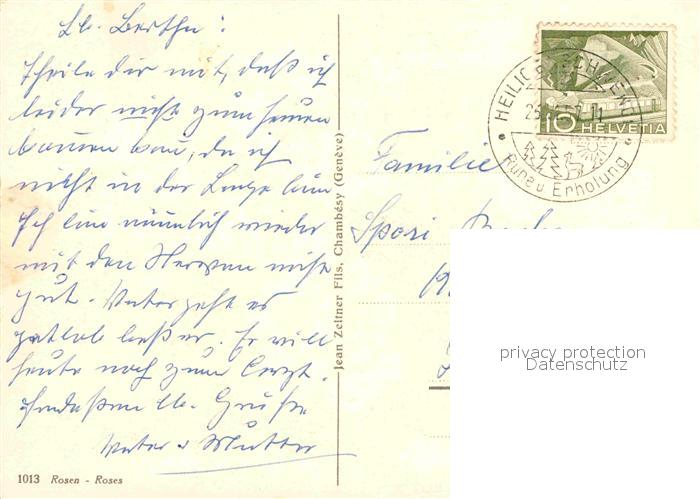 Lb. Bertha :
Theile dir mit, daß ich
leider nicht zum heuen
kommen kann, da ich
nicht in der Lage bin
Ich bin nämlich wieder
mit den Nerven nicht
gut. Vater geht es
gottlob besser. Er will
heute noch zum Arzt.
Indessen lb. Grüße
Vater & Mutter
1013 Rosen - Roses
Jean Zeltner Fils, Chambésy (Genève)
10 HELVETIA
Ruhe u Erholung
Familie
privacy protection
Datenschutz